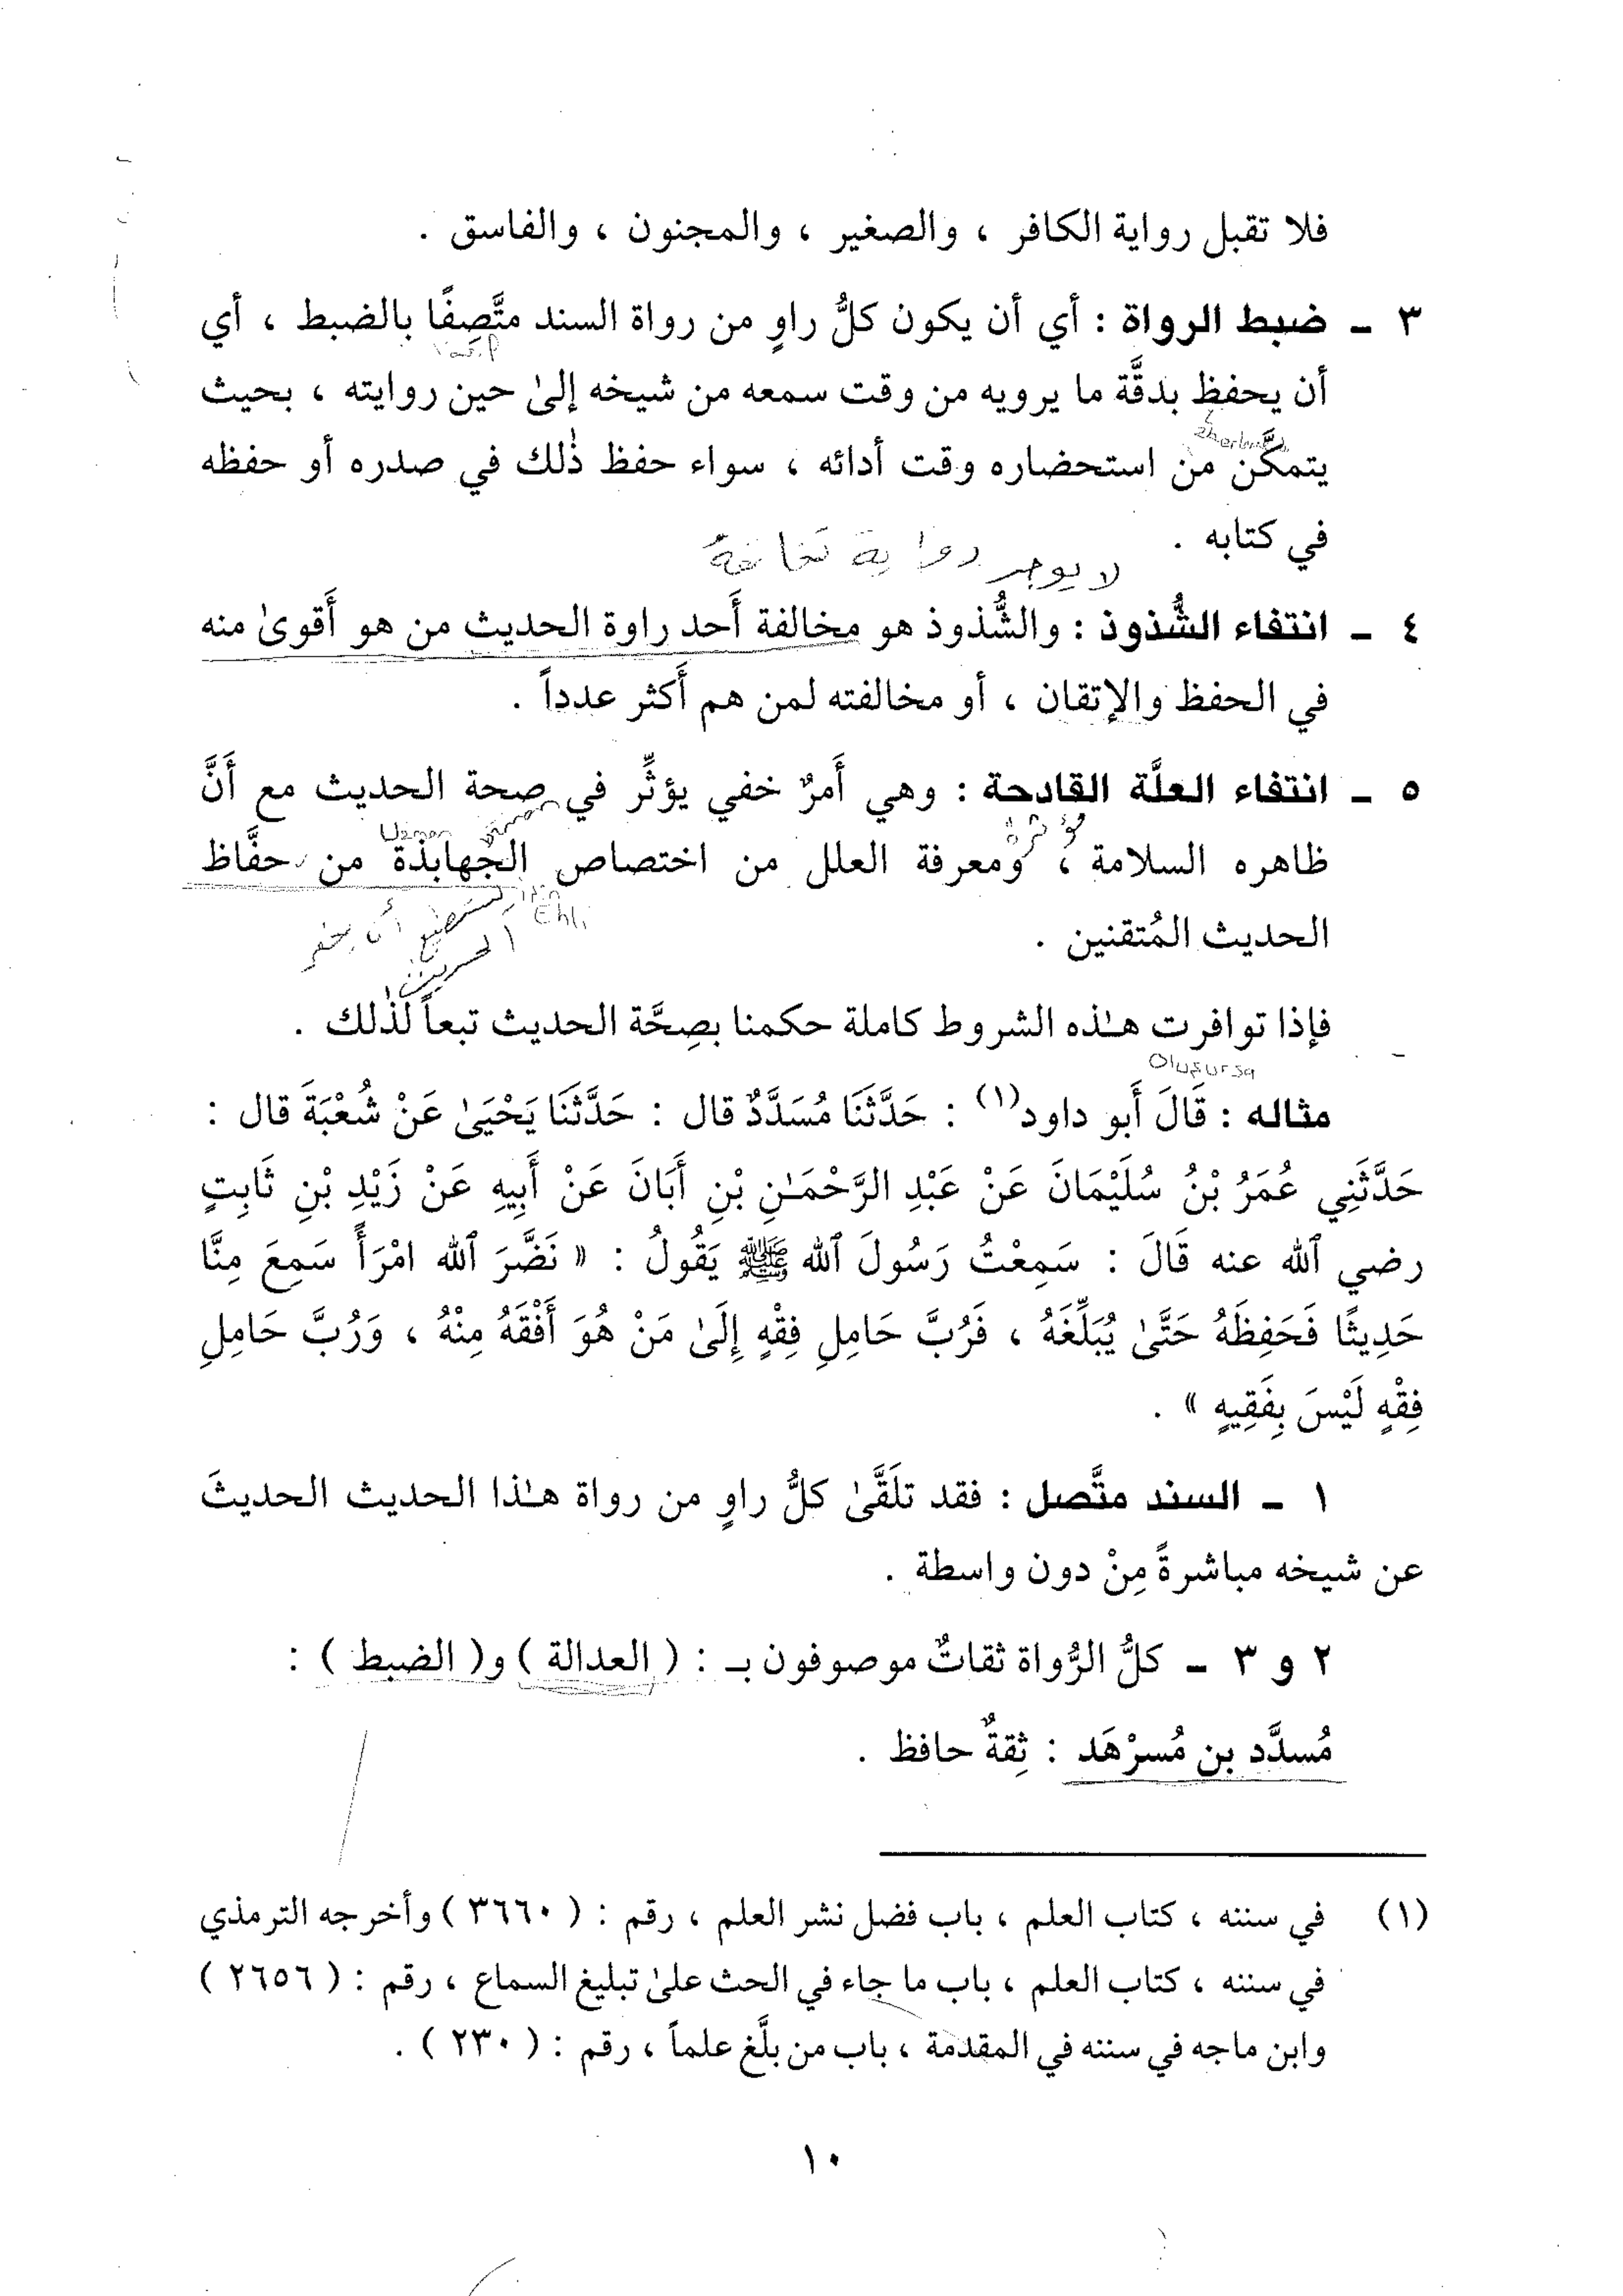 فلا تقبل رواية الكافر ، والصغير ، والمجنون ، والفاسق .
٣ ـ ضبط الرواة : أي أن يكون كلُّ راوٍ من رواة السند متَّصِفًا بالضبط ، أي
أن يحفظ بدقَّة ما يرويه من وقت سمعه من شيخه إلىٰ حين روايته ، بحيث
يتمكَّن من استحضاره وقت أدائه ، سواء حفظ ذٰلك في صدره أو حفظه
في كتابه .
لا يوجد رواية تخالفه
٤ ـ انتفاء الشُّذوذ : والشُّذوذ هو مخالفة أَحد راوة الحديث من هو أَقوىٰ منه
في الحفظ والإتقان ، أو مخالفته لمن هم أَكثر عدداً .
٥ ـ انتفاء العلَّة القادحة : وهي أَمرٌ خفي يؤثِّر في صحة الحديث مع أَنَّ
مؤثرة
Uzman
ظاهره السلامة ، ومعرفة العلل من اختصاص الجهابذة من حفَّاظ
Ehli
الحديث المُتقنين .
فإذا توافرت هـٰذه الشروط كاملة حكمنا بصِحَّة الحديث تبعاً لذٰلك .
Oluşursa
مثاله : قَالَ أَبو داود(١) : حَدَّثَنَا مُسَدَّدٌ قال : حَدَّثَنَا يَحْيَىٰ عَنْ شُعْبَةَ قال :
حَدَّثَنِي عُمَرُ بْنُ سُلَيْمَانَ عَنْ عَبْدِ الرَّحْمَـٰنِ بْنِ أَبَانَ عَنْ أَبِيهِ عَنْ زَيْدِ بْنِ ثَابِتٍ
رضي ٱلله عنه قَالَ : سَمِعْتُ رَسُولَ ٱلله ﷺ يَقُولُ : « نَضَّرَ ٱلله امْرَأً سَمِعَ مِنَّا
حَدِيثًا فَحَفِظَهُ حَتَّىٰ يُبَلِّغَهُ ، فَرُبَّ حَامِلِ فِقْهٍ إِلَىٰ مَنْ هُوَ أَفْقَهُ مِنْهُ ، وَرُبَّ حَامِلِ
فِقْهٍ لَيْسَ بِفَقِيهٍ » .
١ ـ السند متَّصل : فقد تلَقَّىٰ كلُّ راوٍ من رواة هـٰذا الحديث الحديثَ
عن شيخه مباشرةً مِنْ دون واسطة .
٢ و ٣ ـ كلُّ الرُّواة ثقاتٌ موصوفون بـ : ( العدالة ) و( الضبط ) :
مُسدَّد بن مُسرْهَد : ثِقةٌ حافظ .
(١) في سننه ، كتاب العلم ، باب فضل نشر العلم ، رقم : ( ٣٦٦٠ ) وأخرجه الترمذي
في سننه ، كتاب العلم ، باب ما جاء في الحث علىٰ تبليغ السماع ، رقم : ( ٢٦٥٦ )
وابن ماجه في سننه في المقدمة ، باب من بلَّغ علماً ، رقم : ( ٢٣٠ ) .
١٠